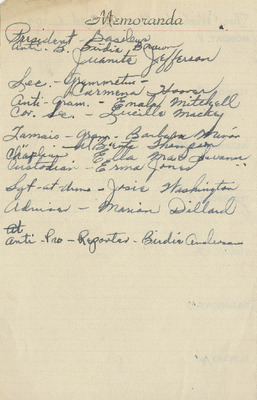 Memoranda
President Basileus
Anti-B. Birdie Brown
Juanita Jefferson
Sec. - Grammateus -
Carmena Hoover
Anti-Gram. - Enalo Mitchell
Cor. Se. - Lucille Mackey
Tamais - Gram. - Barbara
Bernia Thompson
Chaplain Ella Mae Savana
Custodian - Erma Jones
Sgt-at-Arms - Josie Washington
Advisor - Marian Dillard
at
Anti-Pro-Reporter - Birdie Anderson